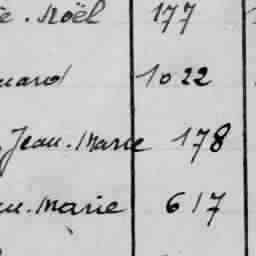 e. Noël 177
uard 1022
Jean. Marie 178
an. Marie 617